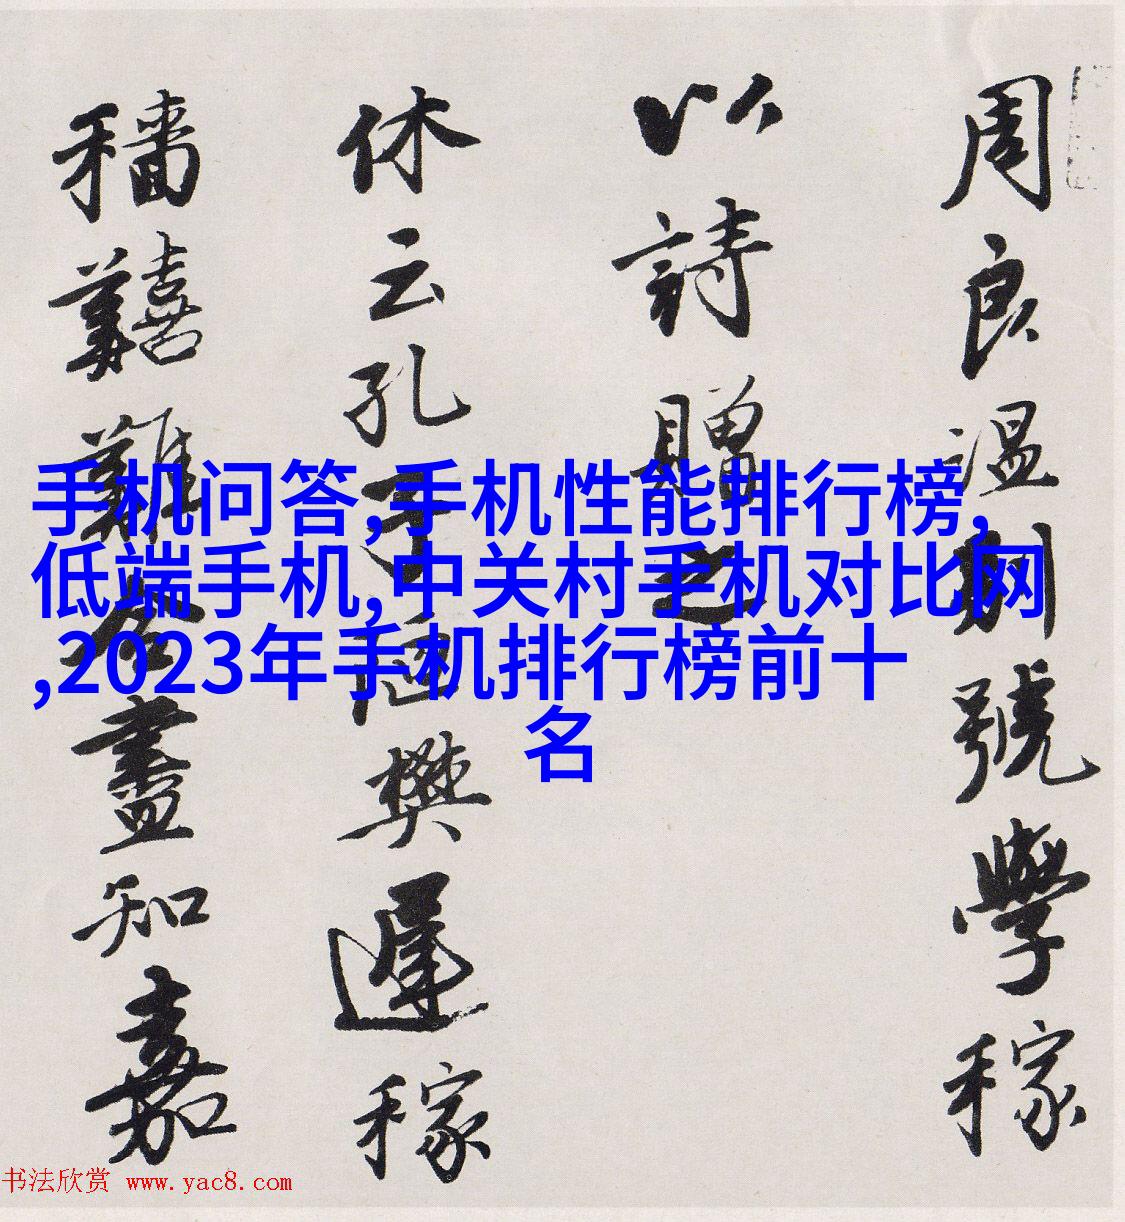 周良温别號學稼
以詩贈之
休云孔子陋樊遲稼
穡囏難名盡知嘉
手机问答,手机性能排行榜,
低端手机,中关村手机对比网
,2023年手机排行榜前十
名
书法欣赏 www.yac8.com